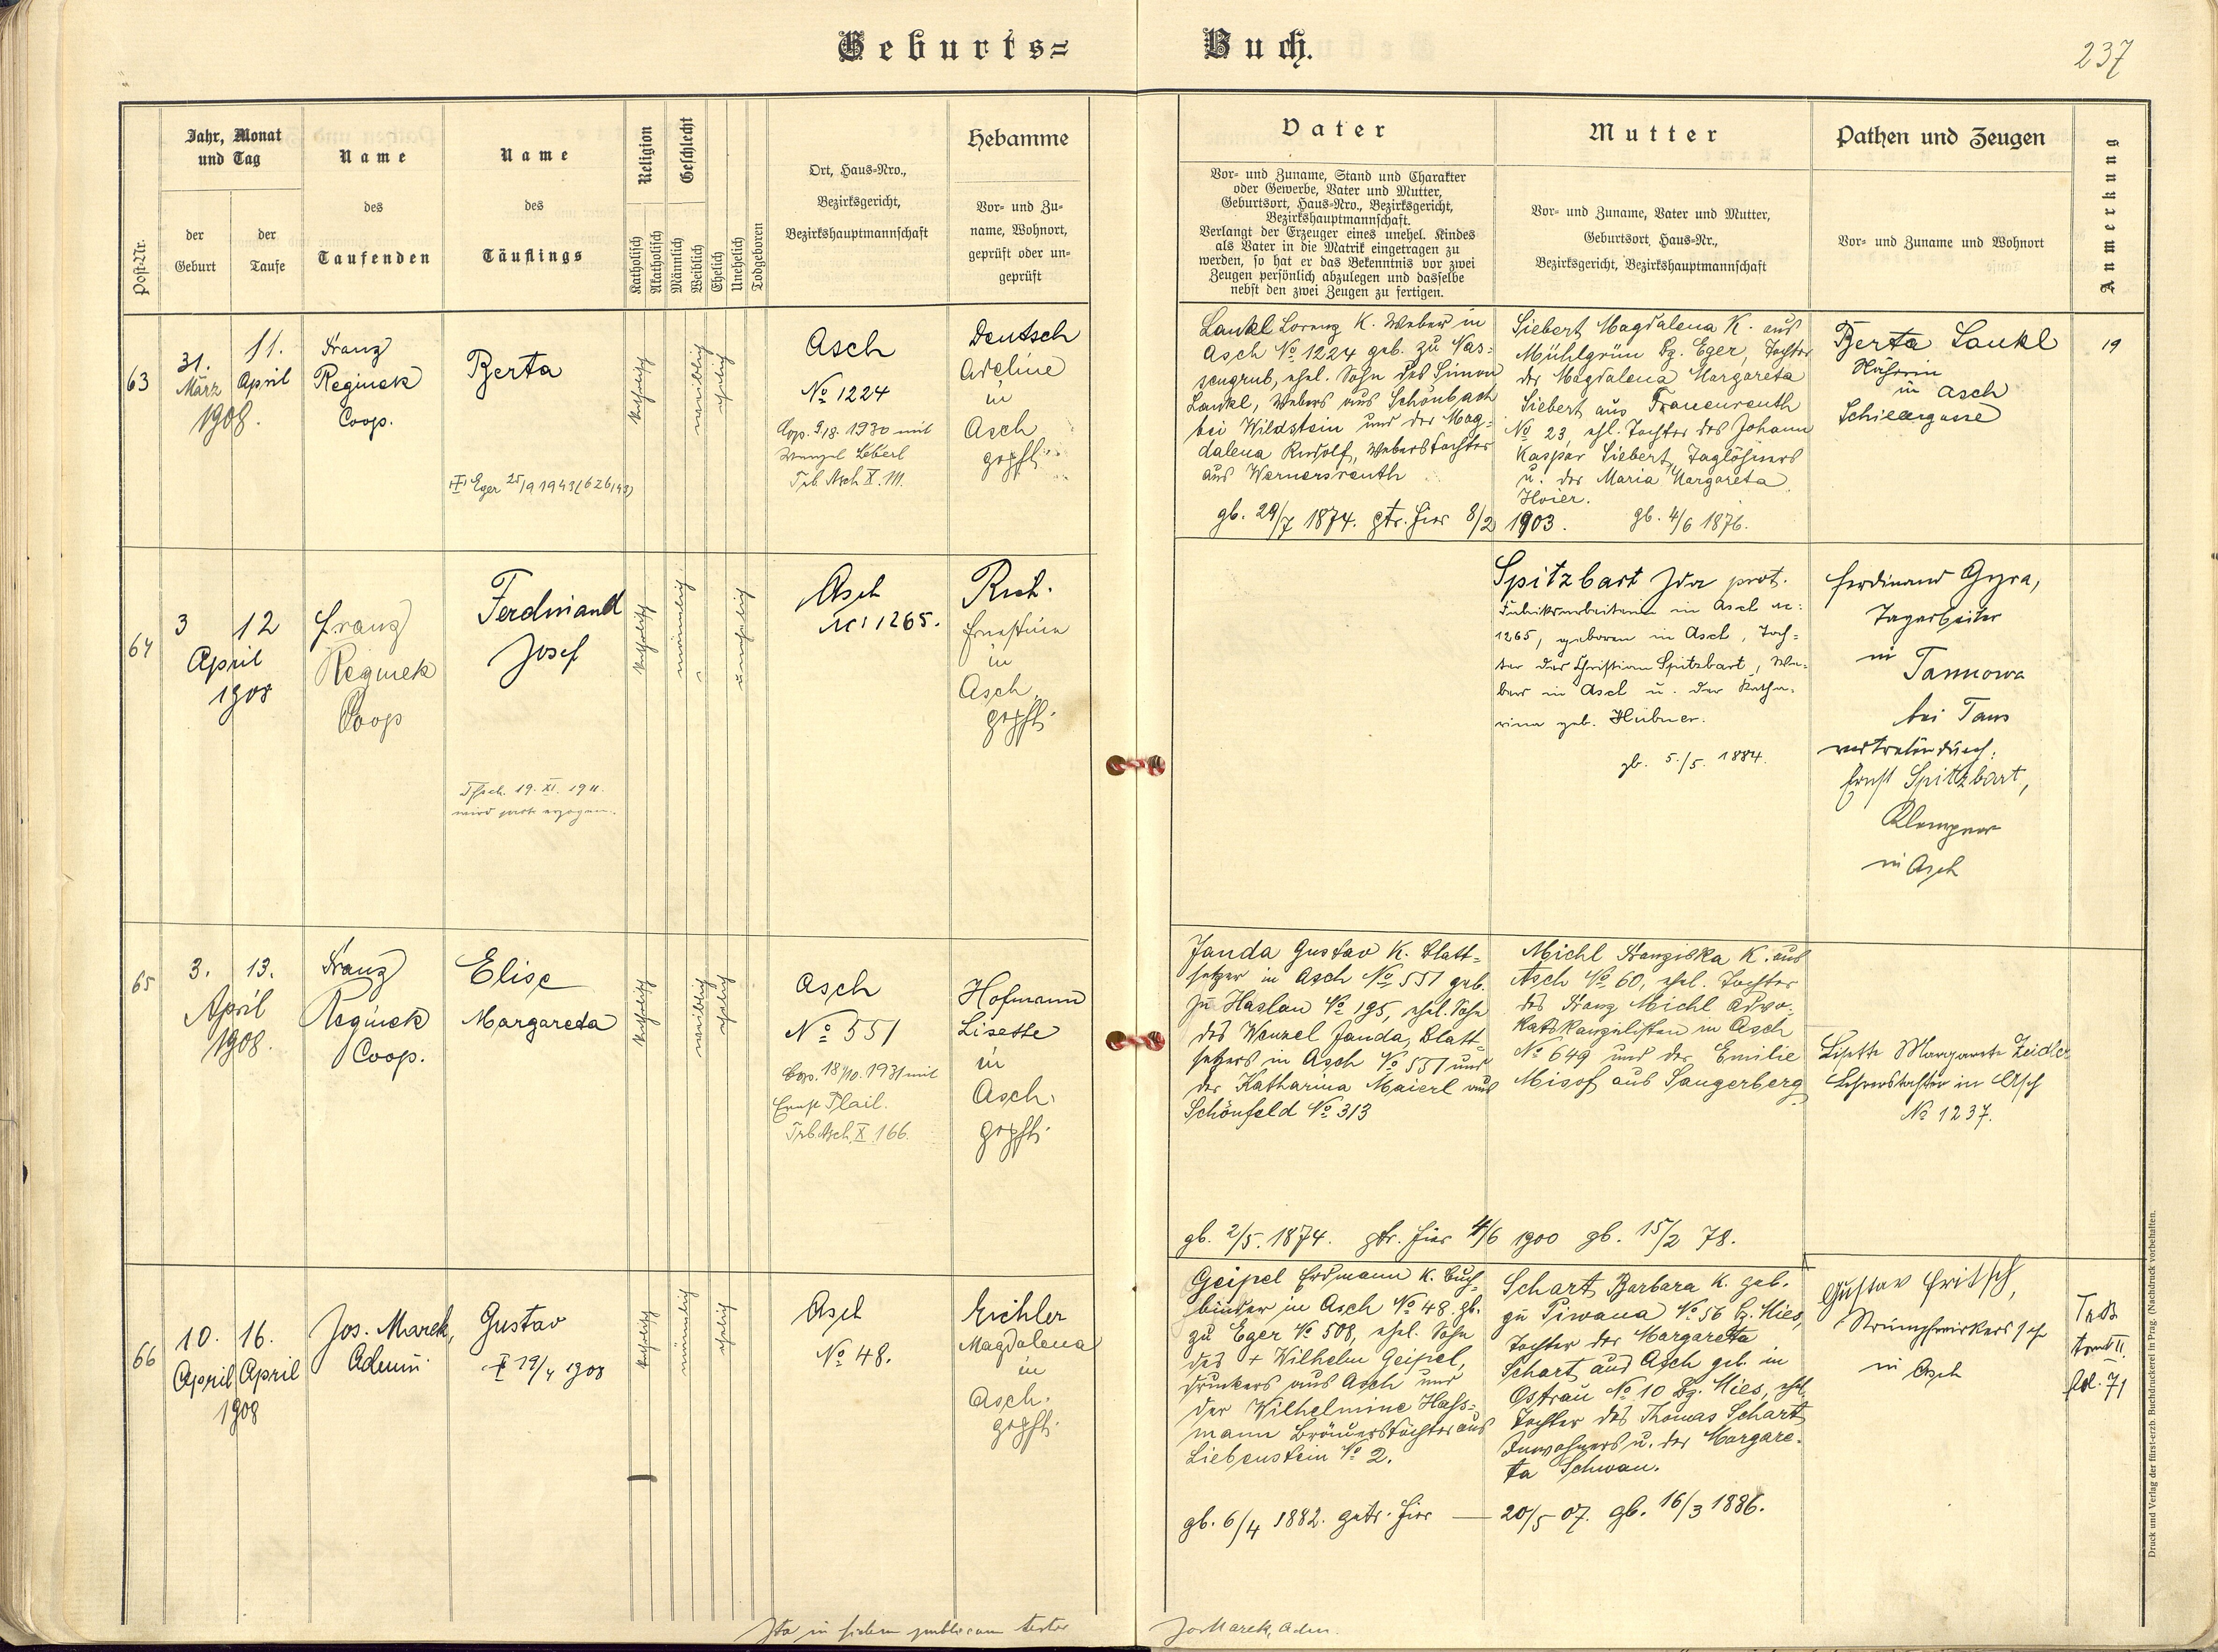 Geburts=
Buch.
237
Post-Nr.
Jahr, Monat
und Tag
der
Geburt
der
Taufe
Name
des
Taufenden
Name
des
Täuflings
Religion
Katholisch
Akatholisch
Geschlecht
Männlich
Weiblich
Ehelich
Unehelich
Todgeboren
Ort, Haus=Nro.,
Bezirksgericht,
Bezirkshauptmannschaft
Hebamme
Vor= und Zu=
name, Wohnort,
geprüft oder un=
geprüft
Vater
Vor= und Zuname, Stand und Charakter
oder Gewerbe, Vater und Mutter,
Geburtsort, Haus=Nro., Bezirksgericht,
Bezirkshauptmannschaft.
Verlangt der Erzeuger eines unehel. Kindes
als Vater in die Matrik eingetragen zu
werden, so hat er das Bekenntnis vor zwei
Zeugen persönlich abzulegen und dasselbe
nebst den zwei Zeugen zu fertigen.
Mutter
Vor= und Zuname, Vater und Mutter,
Geburtsort, Haus=Nr.,
Bezirksgericht, Bezirkshauptmannschaft
Pathen und Zeugen
Vor= und Zuname und Wohnort
Anmerkung
63
31.
März
11.
April
1908.
Franz
Reginek
Coop.
Berta
Eger 25/9 1943 (626/43)
katholisch
weiblich
ehelich
Asch
No 1224
Cop. 9/8. 1930 mit
Wenzel
Trb. Asch X. 111.
Deutsch
Adeline
in
Asch
gepft.
Lankl Lorenz k. Weber in
Asch No 1224 geb. zu Nas=
sengrub, ehel. Sohn des Simon
Lankl, Webers aus Schönbach
bei Wildstein und der Mag=
dalena Rudolf, Weberstochter
aus Wernersreuth
gb. 29/7 1874. gtr. hier 8/2 1903.
Siebert Magdalena k. aus
Mühlgrün Bz. Eger, Tochter
der Magdalena Margareta
Siebert aus Frauenreuth
No 23, ehl. Tochter des Johann
Kaspar Siebert, Taglöhners
u. der Maria Margareta
Hoier.
gb. 4/6 1876.
Berta Lankl
Näherin
in Asch
Schillergasse
19
64
3
12
April
1908
Franz
Reginek
Coop
Ferdinand
Josef
19. XI. 1911.
wird prot. erzogen.
katholisch
männlich
unehelich
Asch
No 1265.
Ernestine
in
Asch,
gepft.
Spitzbart Ida prot.
Fabriksarbeiterin in Asch No
1265, geboren in Asch, Toch=
ter des Christian Spitzbart, We=
bers in Asch u. der Katha=
rina geb. Hübner.
gb. 5./5. 1884.
Ferdinand Gyra,
Tagarbeiter
in Tannowa
bei Taus
vertreten durch:
Ernst Spitzbart,
Klempner
in Asch
65
3.
13.
April
1908.
Franz
Reginek
Coop.
Elise
Margareda
katholisch
weiblich
ehelich
Asch
No 551
Cop. 18/10. 1931 mit
Ernst Plail.
Trb. Asch X. 166.
Hofmann
Lisette
in
Asch.
gepft.
Janda Gustav k. Blatt=
setzer in Asch No 551 geb.
zu Haslau No 195, ehel. Sohn
des Wenzel Janda, Blatt=
setzers in Asch No 551 und
der Katharina Maierl aus
Schönfeld No 313
gb. 2/5. 1874. gtr. hier 4/6 1900 gb. 15/2 78.
Michl Franziska k. aus
Asch No 60, ehel. Tochter
des Franz Michl Advo=
katskanzelisten in Asch
No 649 und der Emilie
Misof aus Sangerberg
Lisette Margarete Zeidler
Lehrerstochter in Asch
No 1237.
66
10.
April
16.
April
1908
Jos. Marek,
Admin.
Gustav
19/4 1908
katholisch
männlich
ehelich
Asch
No 48.
Eichler
Magdalena
in
Asch.
gepft.
Geipel Erdmann k. Buch=
binder in Asch No 48. gb.
zu Eger No 508, ehel. Sohn
des + Wilhelm Geipel,
Druckers aus Asch und
der Wilhelmine Hass=
mann Bräuerstochter aus
Liebenstein No 2.
gb. 6/4 1882. getr. hier — 20/5 07. gb. 16/3 1886.
Schart Barbara k. geb.
zu Piwana No 56 Bz. Mies,
Tochter der Margareta
Schart aus Asch geb. in
Ostrau No 10 Bz. Mies, ehel.
Tochter des Thomas Schart
Inwohners u. der Margare=
ta Schwan.
Gustav Fritsch,
Strumpfwirkers
in Asch
fol. 71
Ita in fidem publicam testor
Jos Marek, Adm.
Druck und Verlag der fürst-erzb. Buchdruckerei in Prag. (Nachdruck vorbehalten.